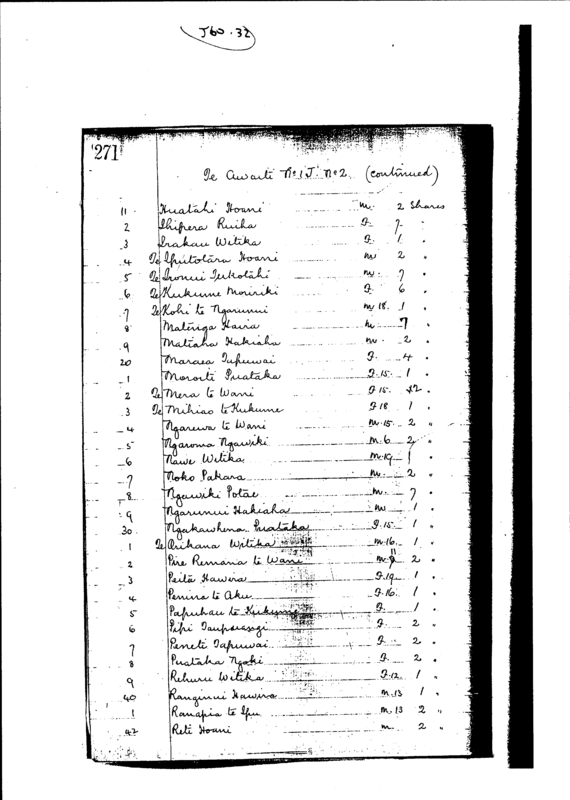 J60.32
271
Te Awaiti No 1 J. No 2. (continued)
11 Huatahi Hoani m. 2 Shares
2 Ihipera Ruiha F. 7 "
3 Irakau Witika F. 1 "
4 Te Hoani m 2 "
5 Te m. 7 "
6 Te Kukume Moririki F. 6 "
7 Te Kohi te Ngarunui m 18. 1 "
8 Matenga Haira m 7 "
9 Mataaha Hakiaha m. 2 "
20 Maraea Tupuwai F. 4 "
1 Puataka F. 15. 1 "
2 Te Mera te Wani F. 15. 2 "
3 Te Mihiao te Kukume F 18 1 "
4 Ngarewa te Wani m. 15. 2 "
5 Ngaroma Ngawiki m. 6 2 "
6 Nawe Witika m. 19 1 "
7 Noko Pakara m. 2 "
8 Ngawiki Potae m. 7 "
9 Ngarunui Hakiaha m 1 "
30 Ngakawhena Puataka F. 15. 1 "
1 Te Arikana Witika m. 16. 1 "
2 Pire Remana te Wani m. 2 "
3 Peita Hawira F. 19. 1 "
4 Penira te Aku F. 16. 1 "
5 Papuhau te Kukume F. 1 "
6 Pipi Taupoirangi F. 2 "
7 Peneti Tapuwai F. 2 "
8 Puataka Ngohi F. 2 "
9 Rehuru Witika F. 12. 1 "
40 Ranginui Hawira m. 13 1 "
1 Ranapia te Ipu m. 13 2 "
42 Reti Hoani m. 2 "